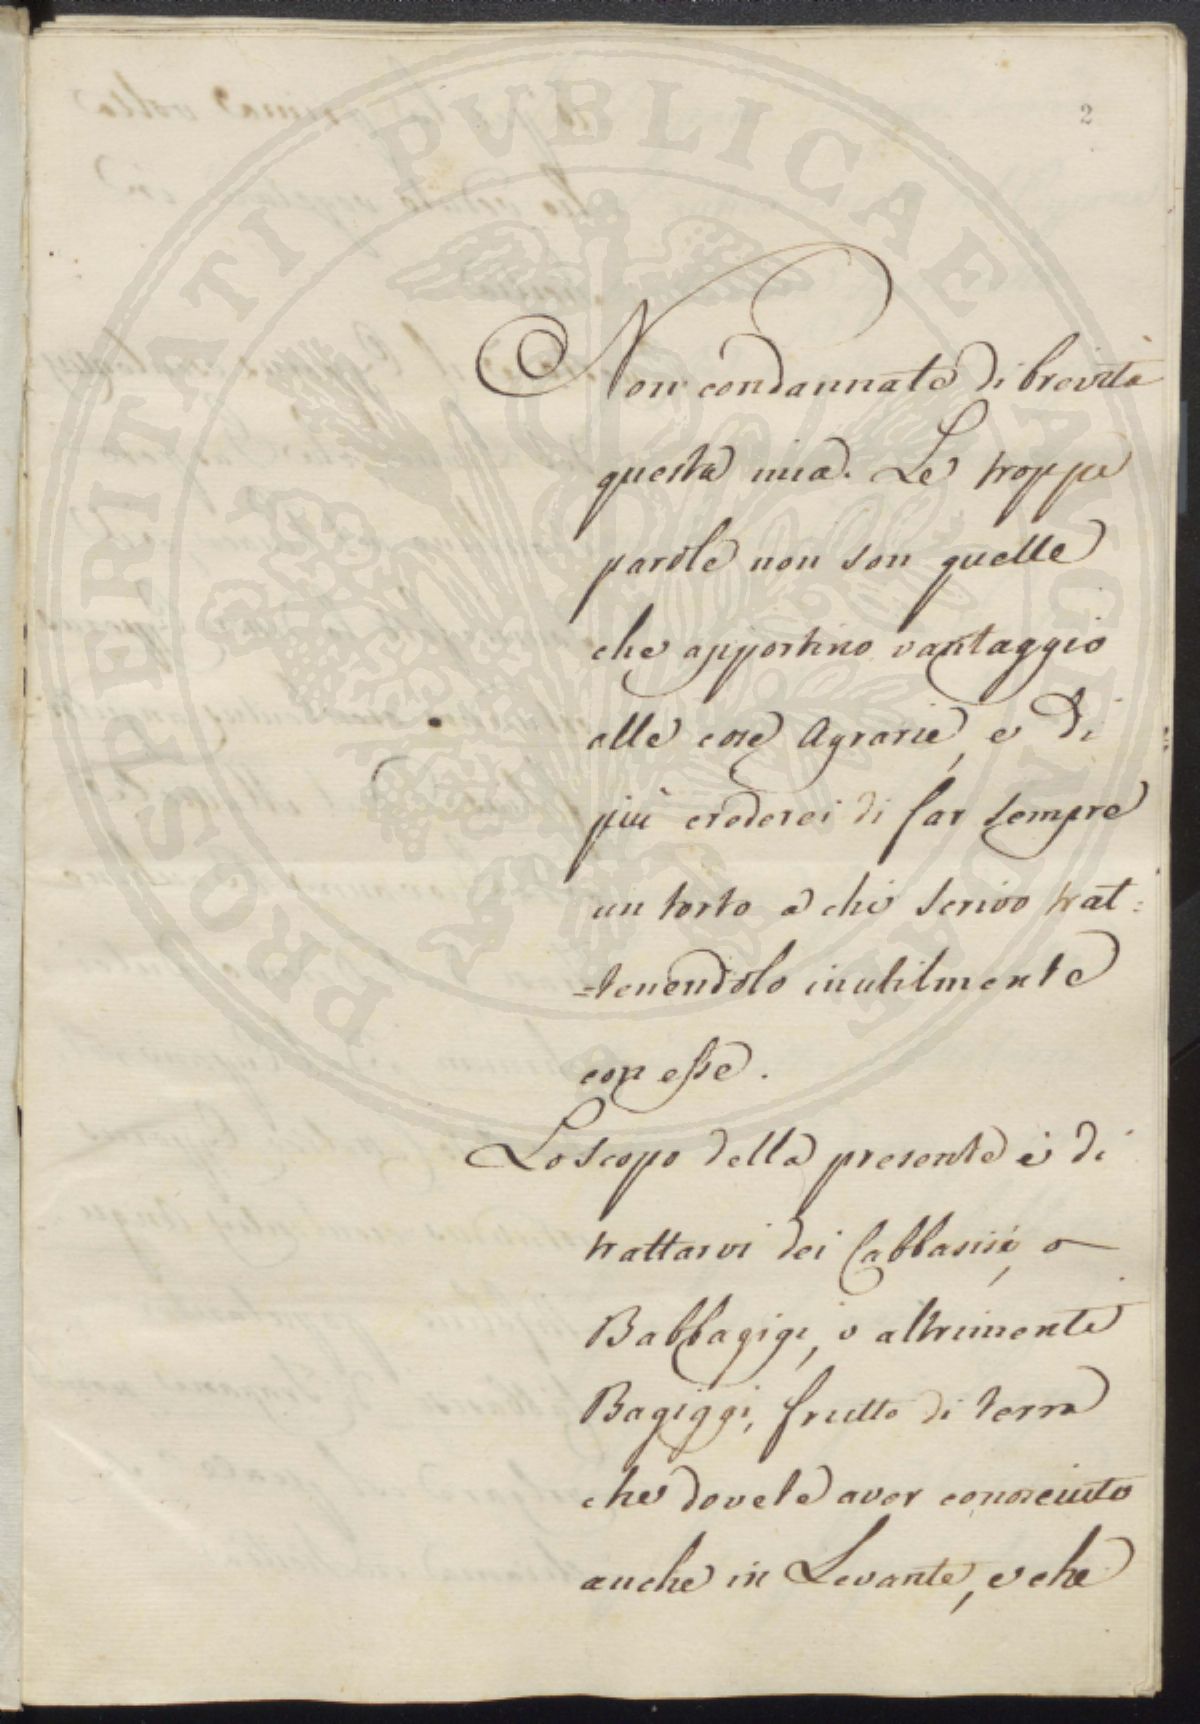 PROSPERITATI PUBLICAE AUGENDAE
2
Non condannate di brevità
questa mia. Le troppe
parole non son quelle
che apportino vantaggio
alle cose Agrarie, e di
più crederei di far sempre
un torto a chi scrivo trat=
=tenendolo inutilmente
con esse.
Lo scopo della presente è di
trattarvi dei Cabbasisi, o
Babbagigi, o altrimente
Bagiggi, frutto di terra
che dovete aver conosciuto
anche in Levante, e che